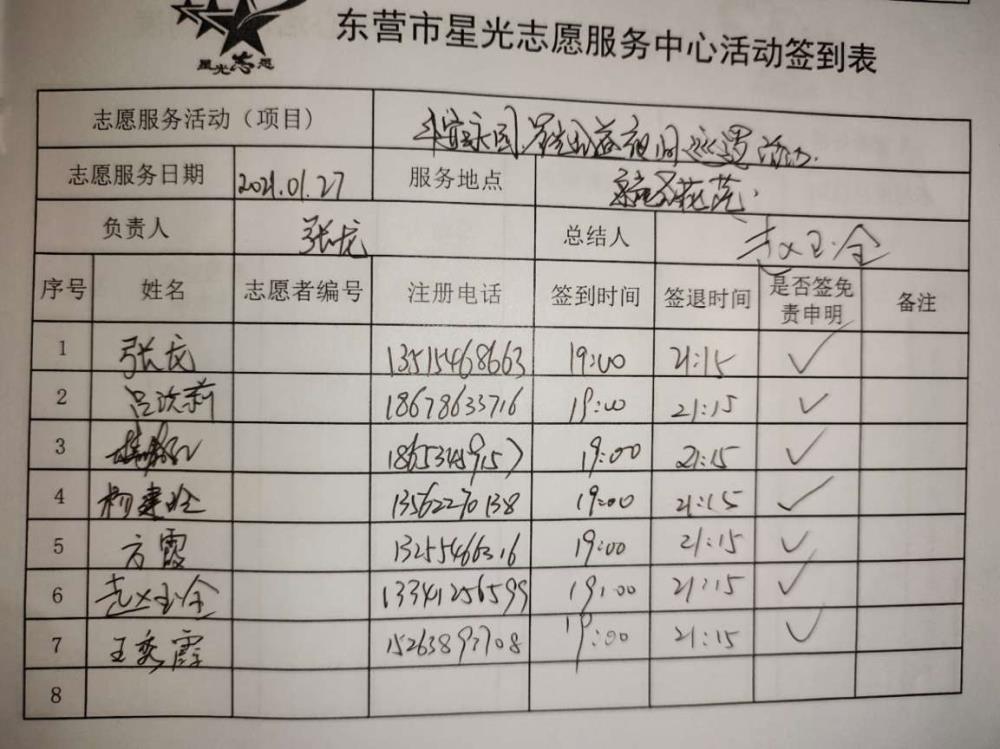 星光志愿
东营市星光志愿服务中心活动签到表
志愿服务活动（项目） 夜间巡逻活动.
志愿服务日期 2021.01.27 服务地点
负责人 张龙 总结人 赵玉全
序号 姓名 志愿者编号 注册电话 签到时间 签退时间 是否签免责申明 备注
1 张龙 13515468663 19:00 21:15 ✓
2 吕洪莉 18678633716 19:00 21:15 ✓
3 19:00 21:15 ✓
4 杨建 13562270138 19:00 21:15 ✓
5 方霞 13255466316 19:00 21:15 ✓
6 赵玉全 13341256599 19:00 21:15 ✓
7 王秀霞 15263897708 19:00 21:15 ✓
8